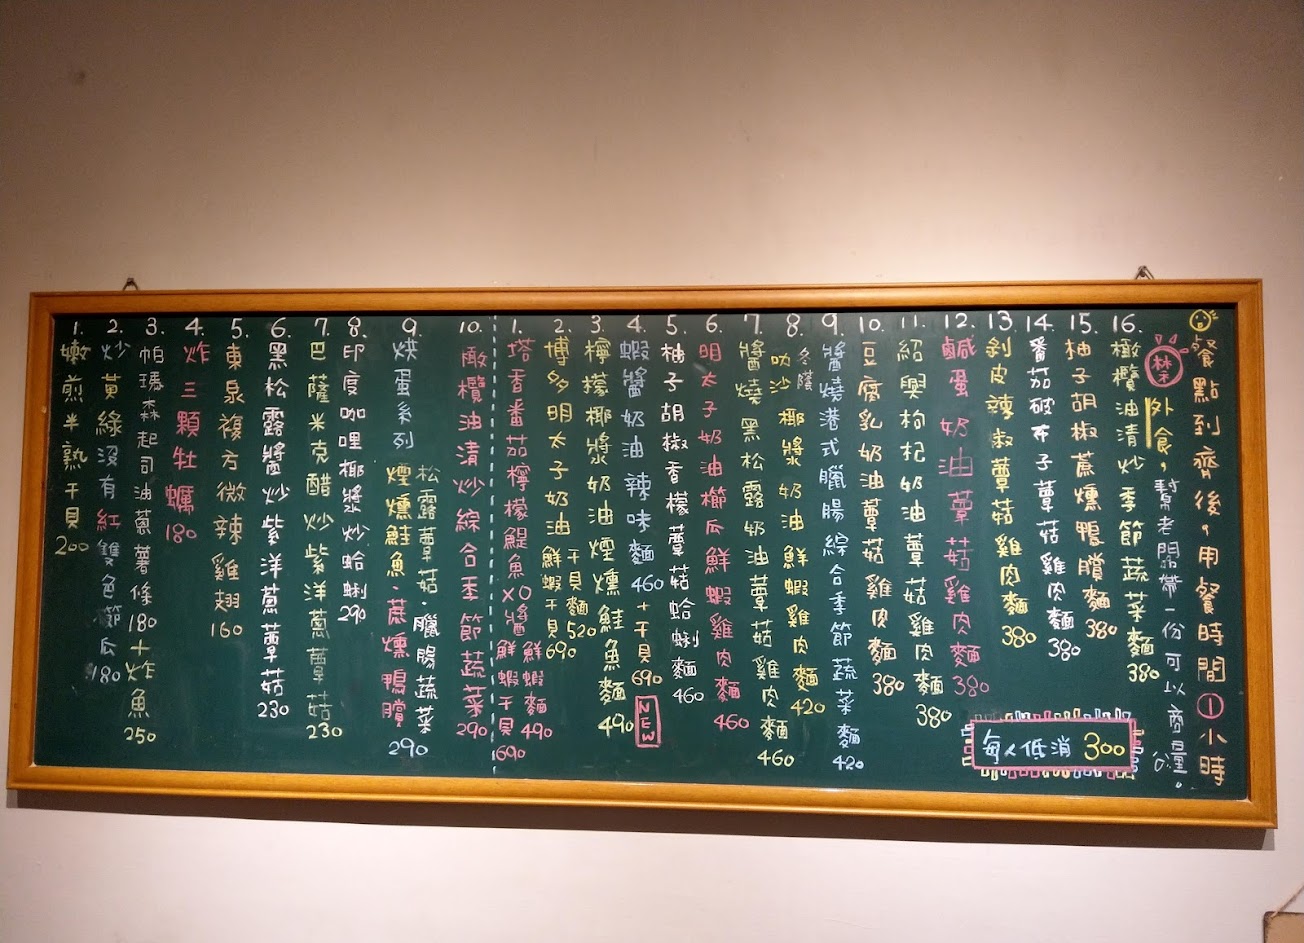 1. 嫩煎半熟干貝 200
2. 炒黃綠沒有紅雙色櫛瓜 180
3. 帕瑪森起司油蔥薯條 180 十炸魚 250
4. 炸三顆牡蠣 180
5. 東泉複方微辣雞翅 160
6. 黑松露醬炒紫洋蔥蕈菇 230
7. 巴薩米克醋炒紫洋蔥蕈菇 230
8. 印度咖哩椰漿炒蛤蜊 290
9. 烘蛋系列
松露蕈菇・臘腸蔬菜
煙燻鮭魚・蔗燻鴨賞
290
10. 橄欖油清炒綜合季節蔬菜 290
1. 塔香番茄檸檬鯷魚XO醬
鮮蝦麵 490
鮮蝦干貝 690
2. 博多明太子奶油
干貝麵 520
鮮蝦干貝 690
3. 檸檬椰漿奶油煙燻鮭魚麵 490
4. 蝦醬奶油辣味麵 460 +干貝 690 NEW
5. 柚子胡椒香檬蕈菇蛤蜊麵 460
6. 明太子奶油櫛瓜鮮蝦雞肉麵 460
7. 醬燒黑松露奶油蕈菇雞肉麵 460
8. 冬蔭
叻沙椰漿奶油鮮蝦雞肉麵 420
9. 醬燒港式臘腸綜合季節蔬菜麵 420
10. 豆腐乳奶油蕈菇雞肉麵 380
11. 紹興枸杞奶油蕈菇雞肉麵 380
12. 鹹蛋奶油蕈菇雞肉麵 380
13. 剝皮辣椒蕈菇雞肉麵 380
14. 番茄破布子蕈菇雞肉麵 380
15. 柚子胡椒蔗燻鴨賞麵 380
16. 橄欖油清炒季節蔬菜麵 380
每人低消 300
禁外食，幫老闆帶一份可以商量。
餐點到齊後，用餐時間①小時